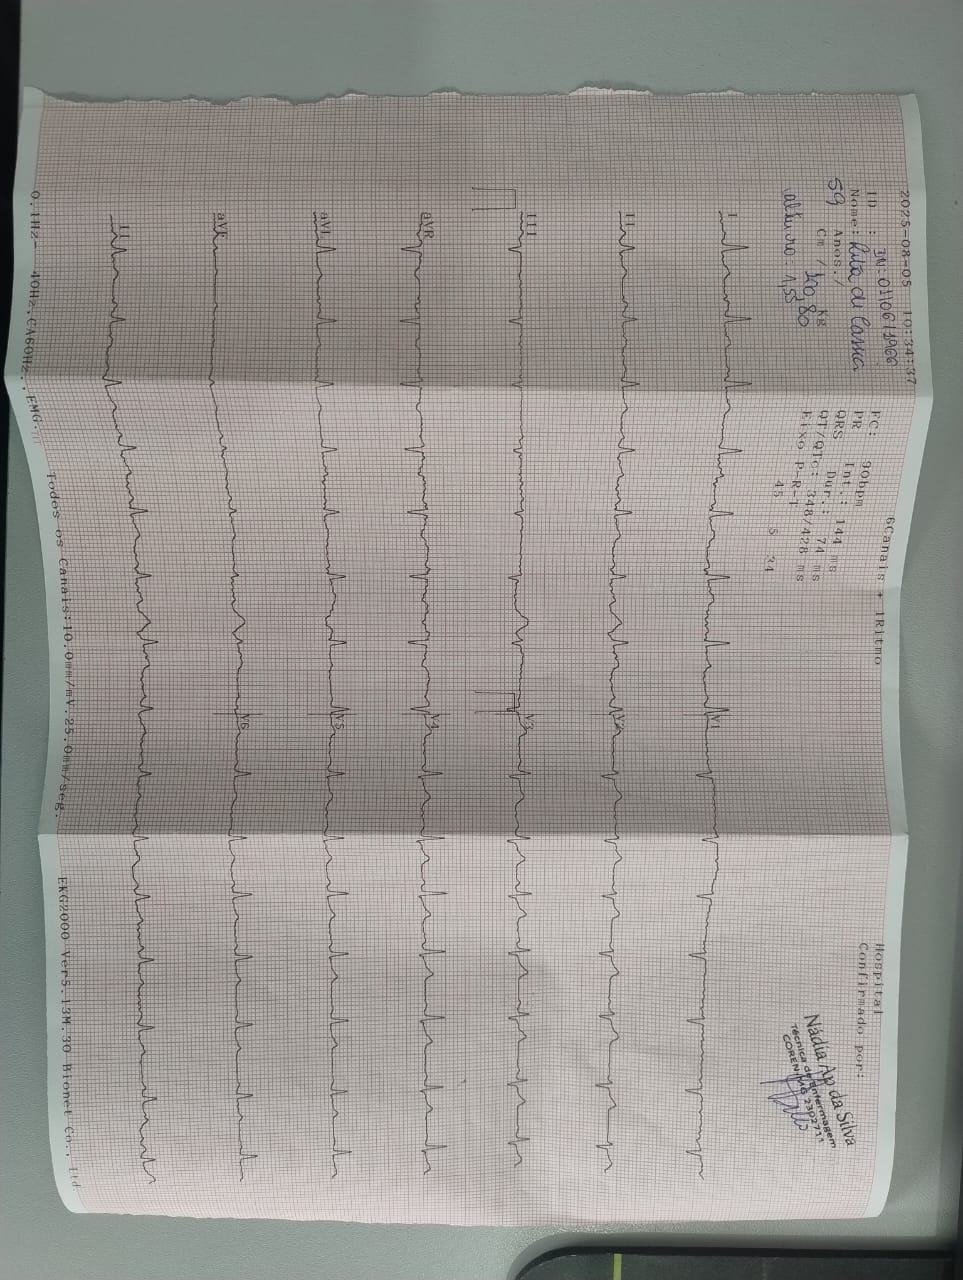 2025-08-05 10:34:37
6Canais + 1Ritmo
Hospital
ID :
DN: 01/06/1966
Nome: Rita de Cassia
59 Anos. /
Cm / Kg
100,80
altura: 1,55
FC: 90bpm
PR Int.: 144 ms
QRS Dur.: 74 ms
QT/QTc: 348/428 ms
Eixo P-R-T
45 5 34
Confirmado por:
Nádia Ap da Silva
Técnica de Enfermagem
COREN-MG 2302711
I
V1
II
V2
III
V3
aVR
V4
aVL
V5
aVF
V6
II
0.1Hz- 40Hz,CA60Hz, EMG.
Todos os Canais:10.0mm/mV.25.0mm/seg.
EKG2000 Ver5.13M.30 Bionet Co., Ltd